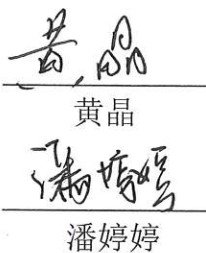 黄晶
黄晶
潘婷婷
潘婷婷